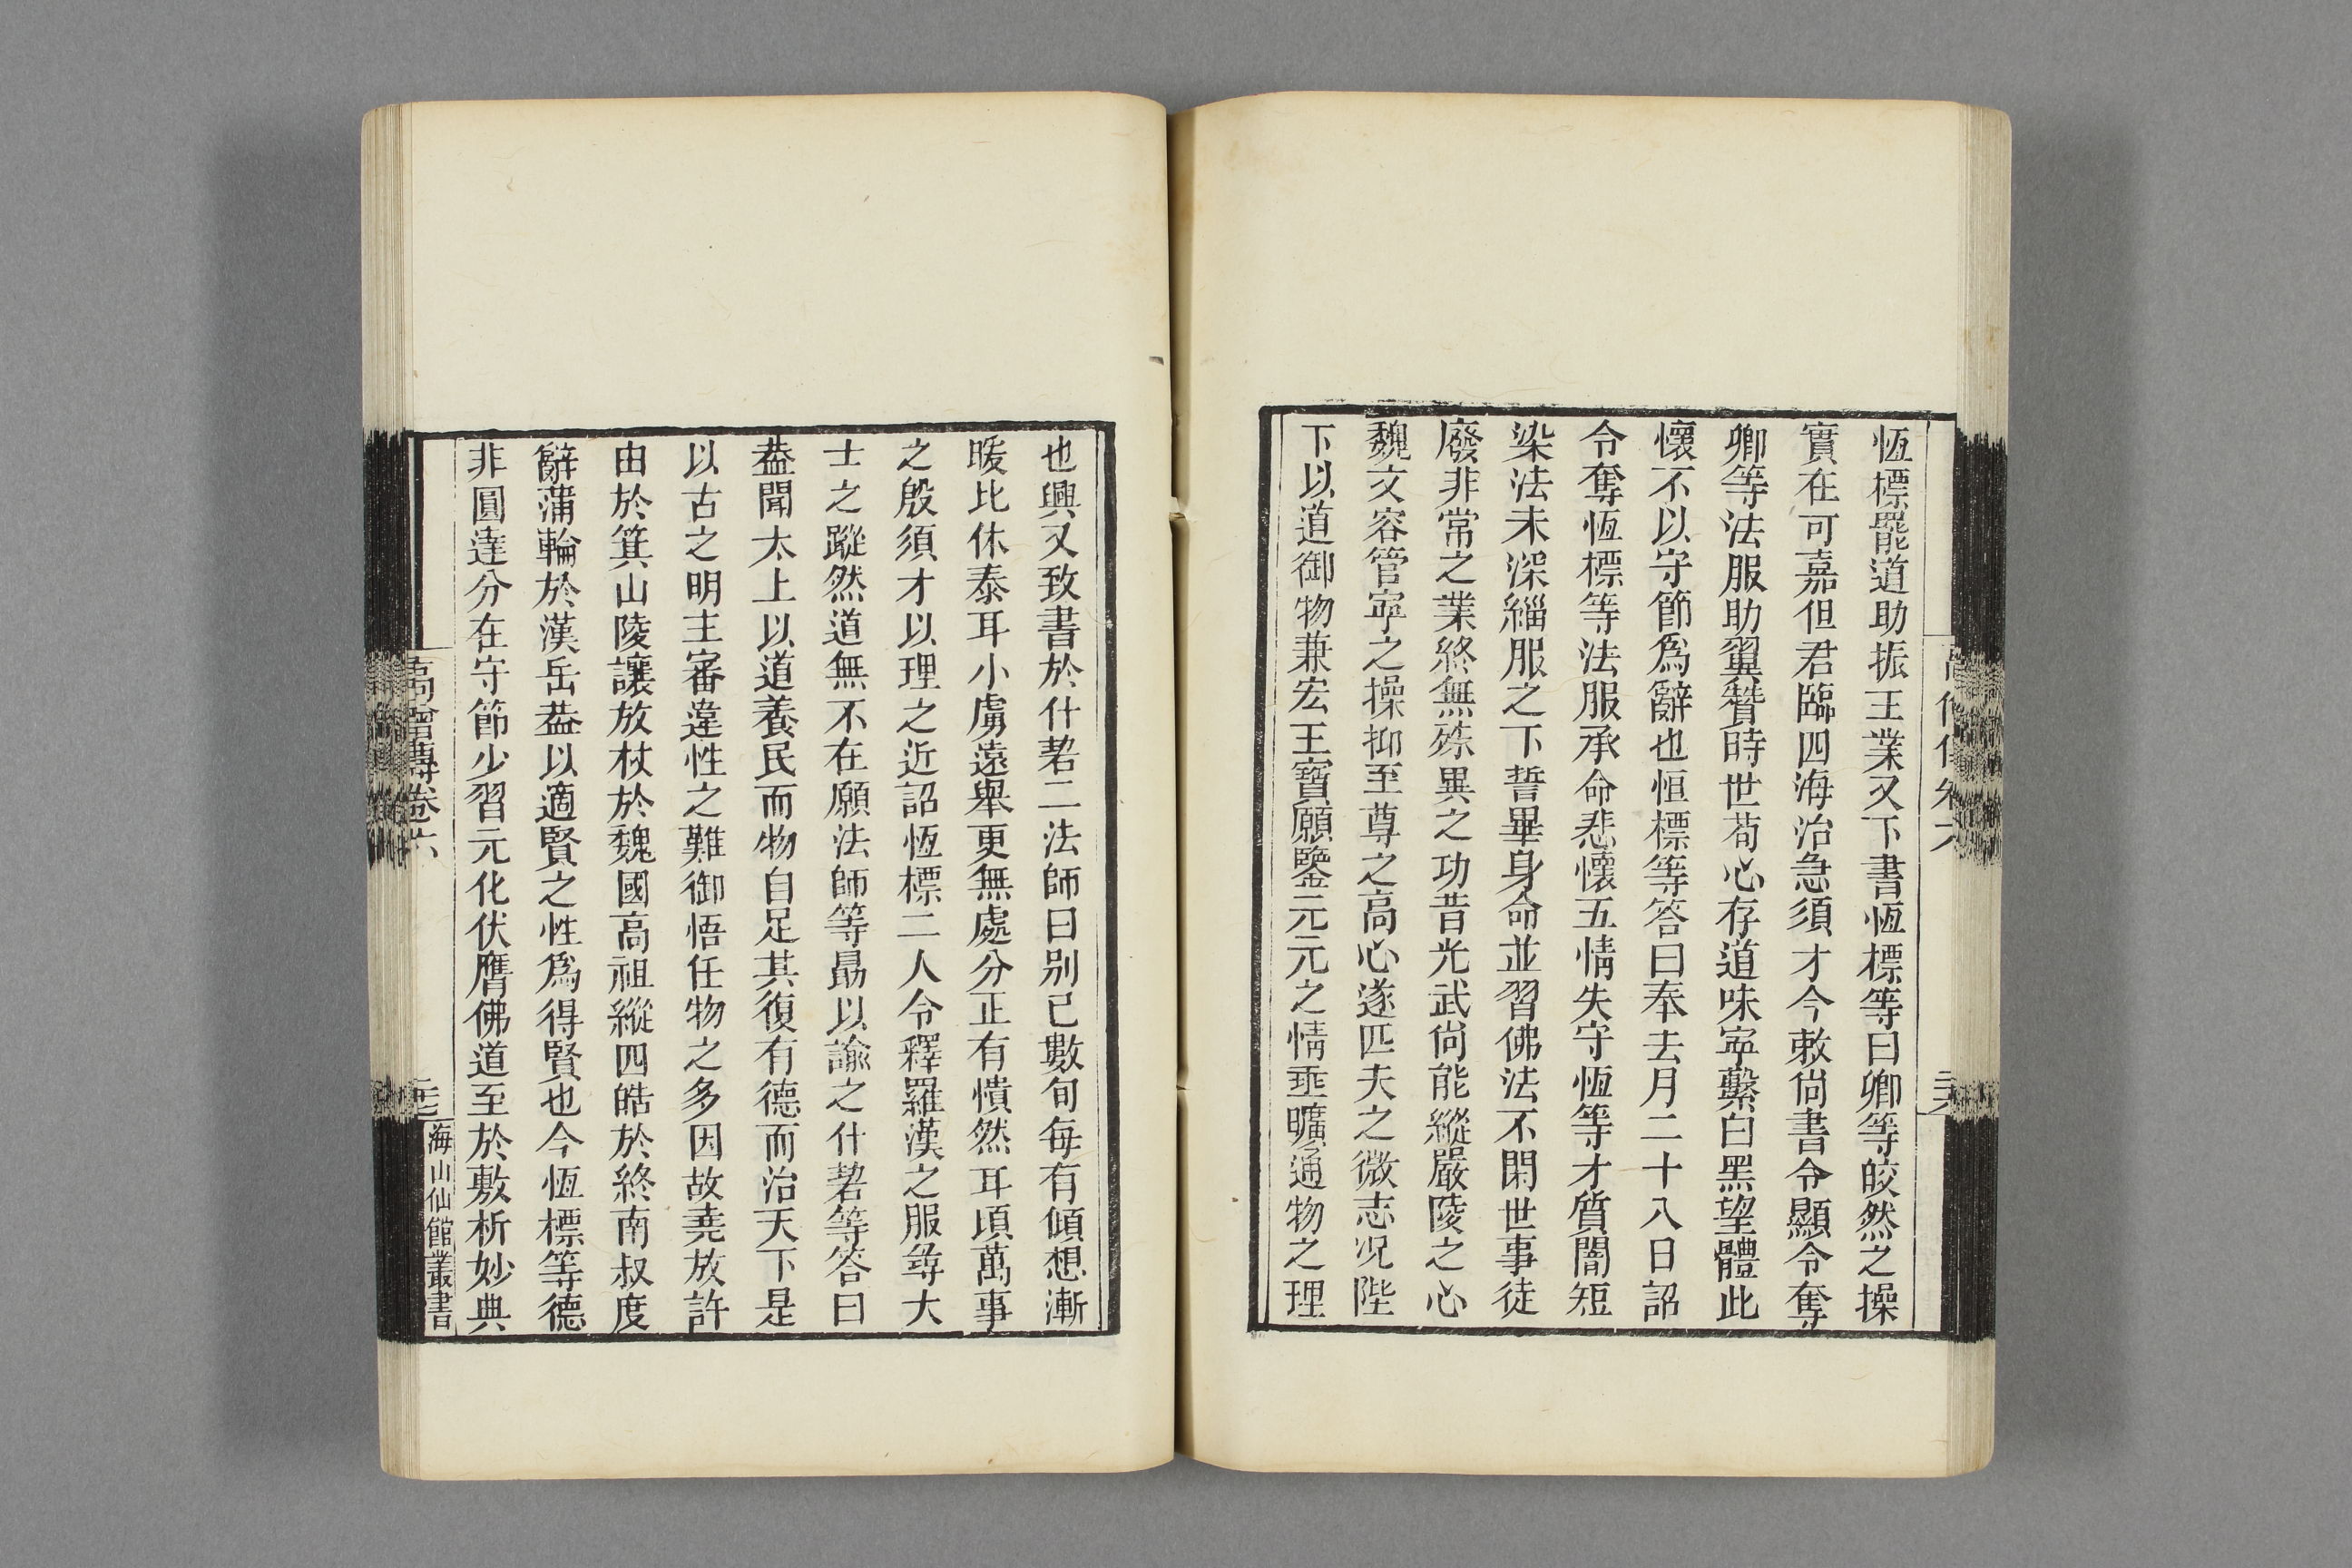 恆標罷道助振王業又下書恆標等曰卿等皎然之操
實在可嘉但君臨四海治急須才今敕尙書令顯令奪
卿等法服助翼贊時世苟心存道味寧繫白黑望體此
懷不以守節爲辭也恆標等答曰奉去月二十八日詔
令奪恆標等法服承命悲懷五情失守恆等才質闇短
染法未深緇服之下誓畢身命並習佛法不閑世事徒
廢非常之業終無殊異之功昔光武尙能縱嚴陵之心
魏文容管寧之操抑至尊之高心遂匹夫之微志况陛
下以道御物兼宏王寶願鑒元元之情垂曠通物之理
也興又致書於什䂮二法師曰别已數旬每有傾想漸
暖比休泰耳小虜遠舉更無處分正有憒然耳頃萬事
之殷須才以理之近詔恆標二人令釋羅漢之服尋大
士之蹤然道無不在願法師等勗以諭之什䂮等答曰
葢聞太上以道養民而物自足其復有德而治天下是
以古之明主審違性之難御悟任物之多因故堯放許
由於箕山陵讓放杖於魏國高祖縱四皓於終南叔度
辭蒲輪於漢岳葢以適賢之性爲得賢也今恆標等德
非圓達分在守節少習元化伏膺佛道至於敷析妙典
高僧傳卷六
海山仙館叢書